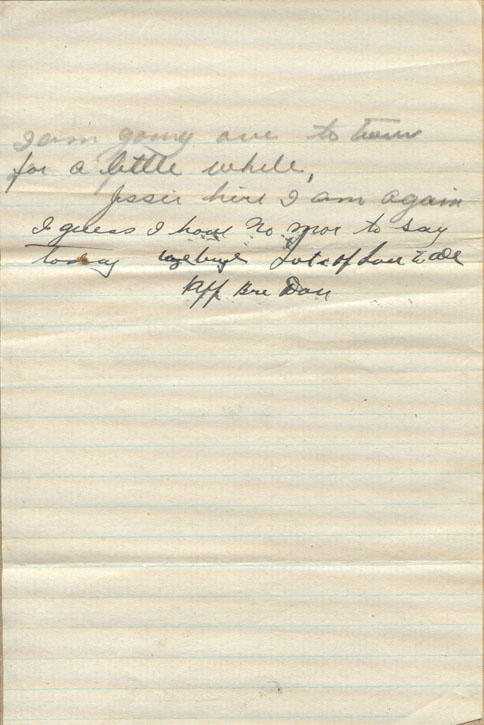 I am going over to town
for a little while,
Jessie here I am again
I guess I have No mor to say
today bye bye Lots of Love to all
Aff Bro Dan